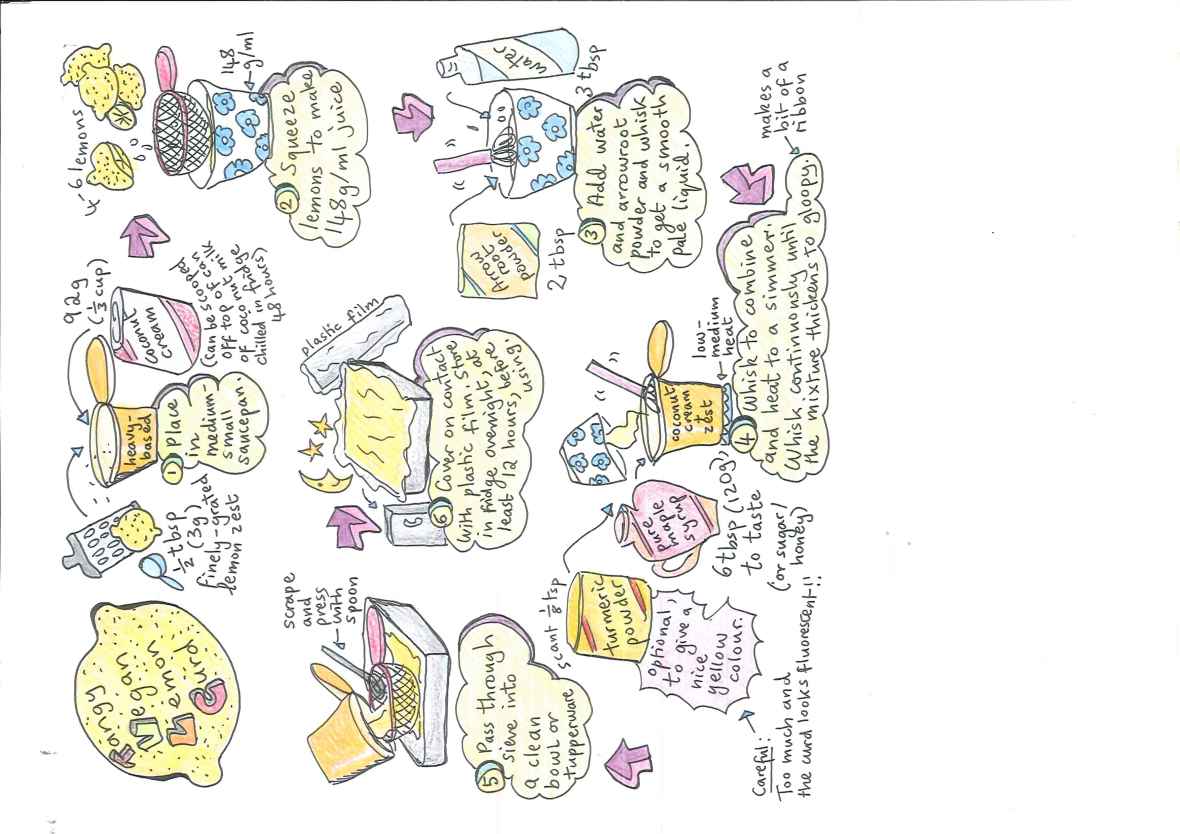 Tangy
Vegan
Lemon
Curd
½ tbsp
(3g)
finely-grated
lemon zest
heavy-
based
① Place
in
medium-
small
saucepan.
92g
(⅓ cup)
coconut
cream
(can be scooped
off top of can
of coconut milk
chilled in fridge
48 hours)
4-6 lemons
148
g/ml
② Squeeze
lemons to make
148g/ml juice
water
3 tbsp
Arrow
root
powder
2 tbsp
③ Add water
and arrowroot
powder and whisk
to get a smooth
pale liquid.
turmeric
powder
scant ⅛ tsp
optional,
to give a
nice
yellow
colour.
Careful:
Too much and
the curd looks fluorescent!!
pure
maple
syrup
6 tbsp (120g),
to taste
(or sugar/
honey)
coconut
cream
zest
low-
medium
heat
④ Whisk to combine
and heat to a simmer.
Whisk continuously until
the mixture thickens to gloopy.
makes a
bit of a
ribbon
scrape
and
press
with
spoon
⑤ Pass through
sieve into
a clean
bowl or
tupperware
plastic film
⑥ Cover on contact
with plastic film. Store
in fridge overnight, at
least 12 hours, before
using.